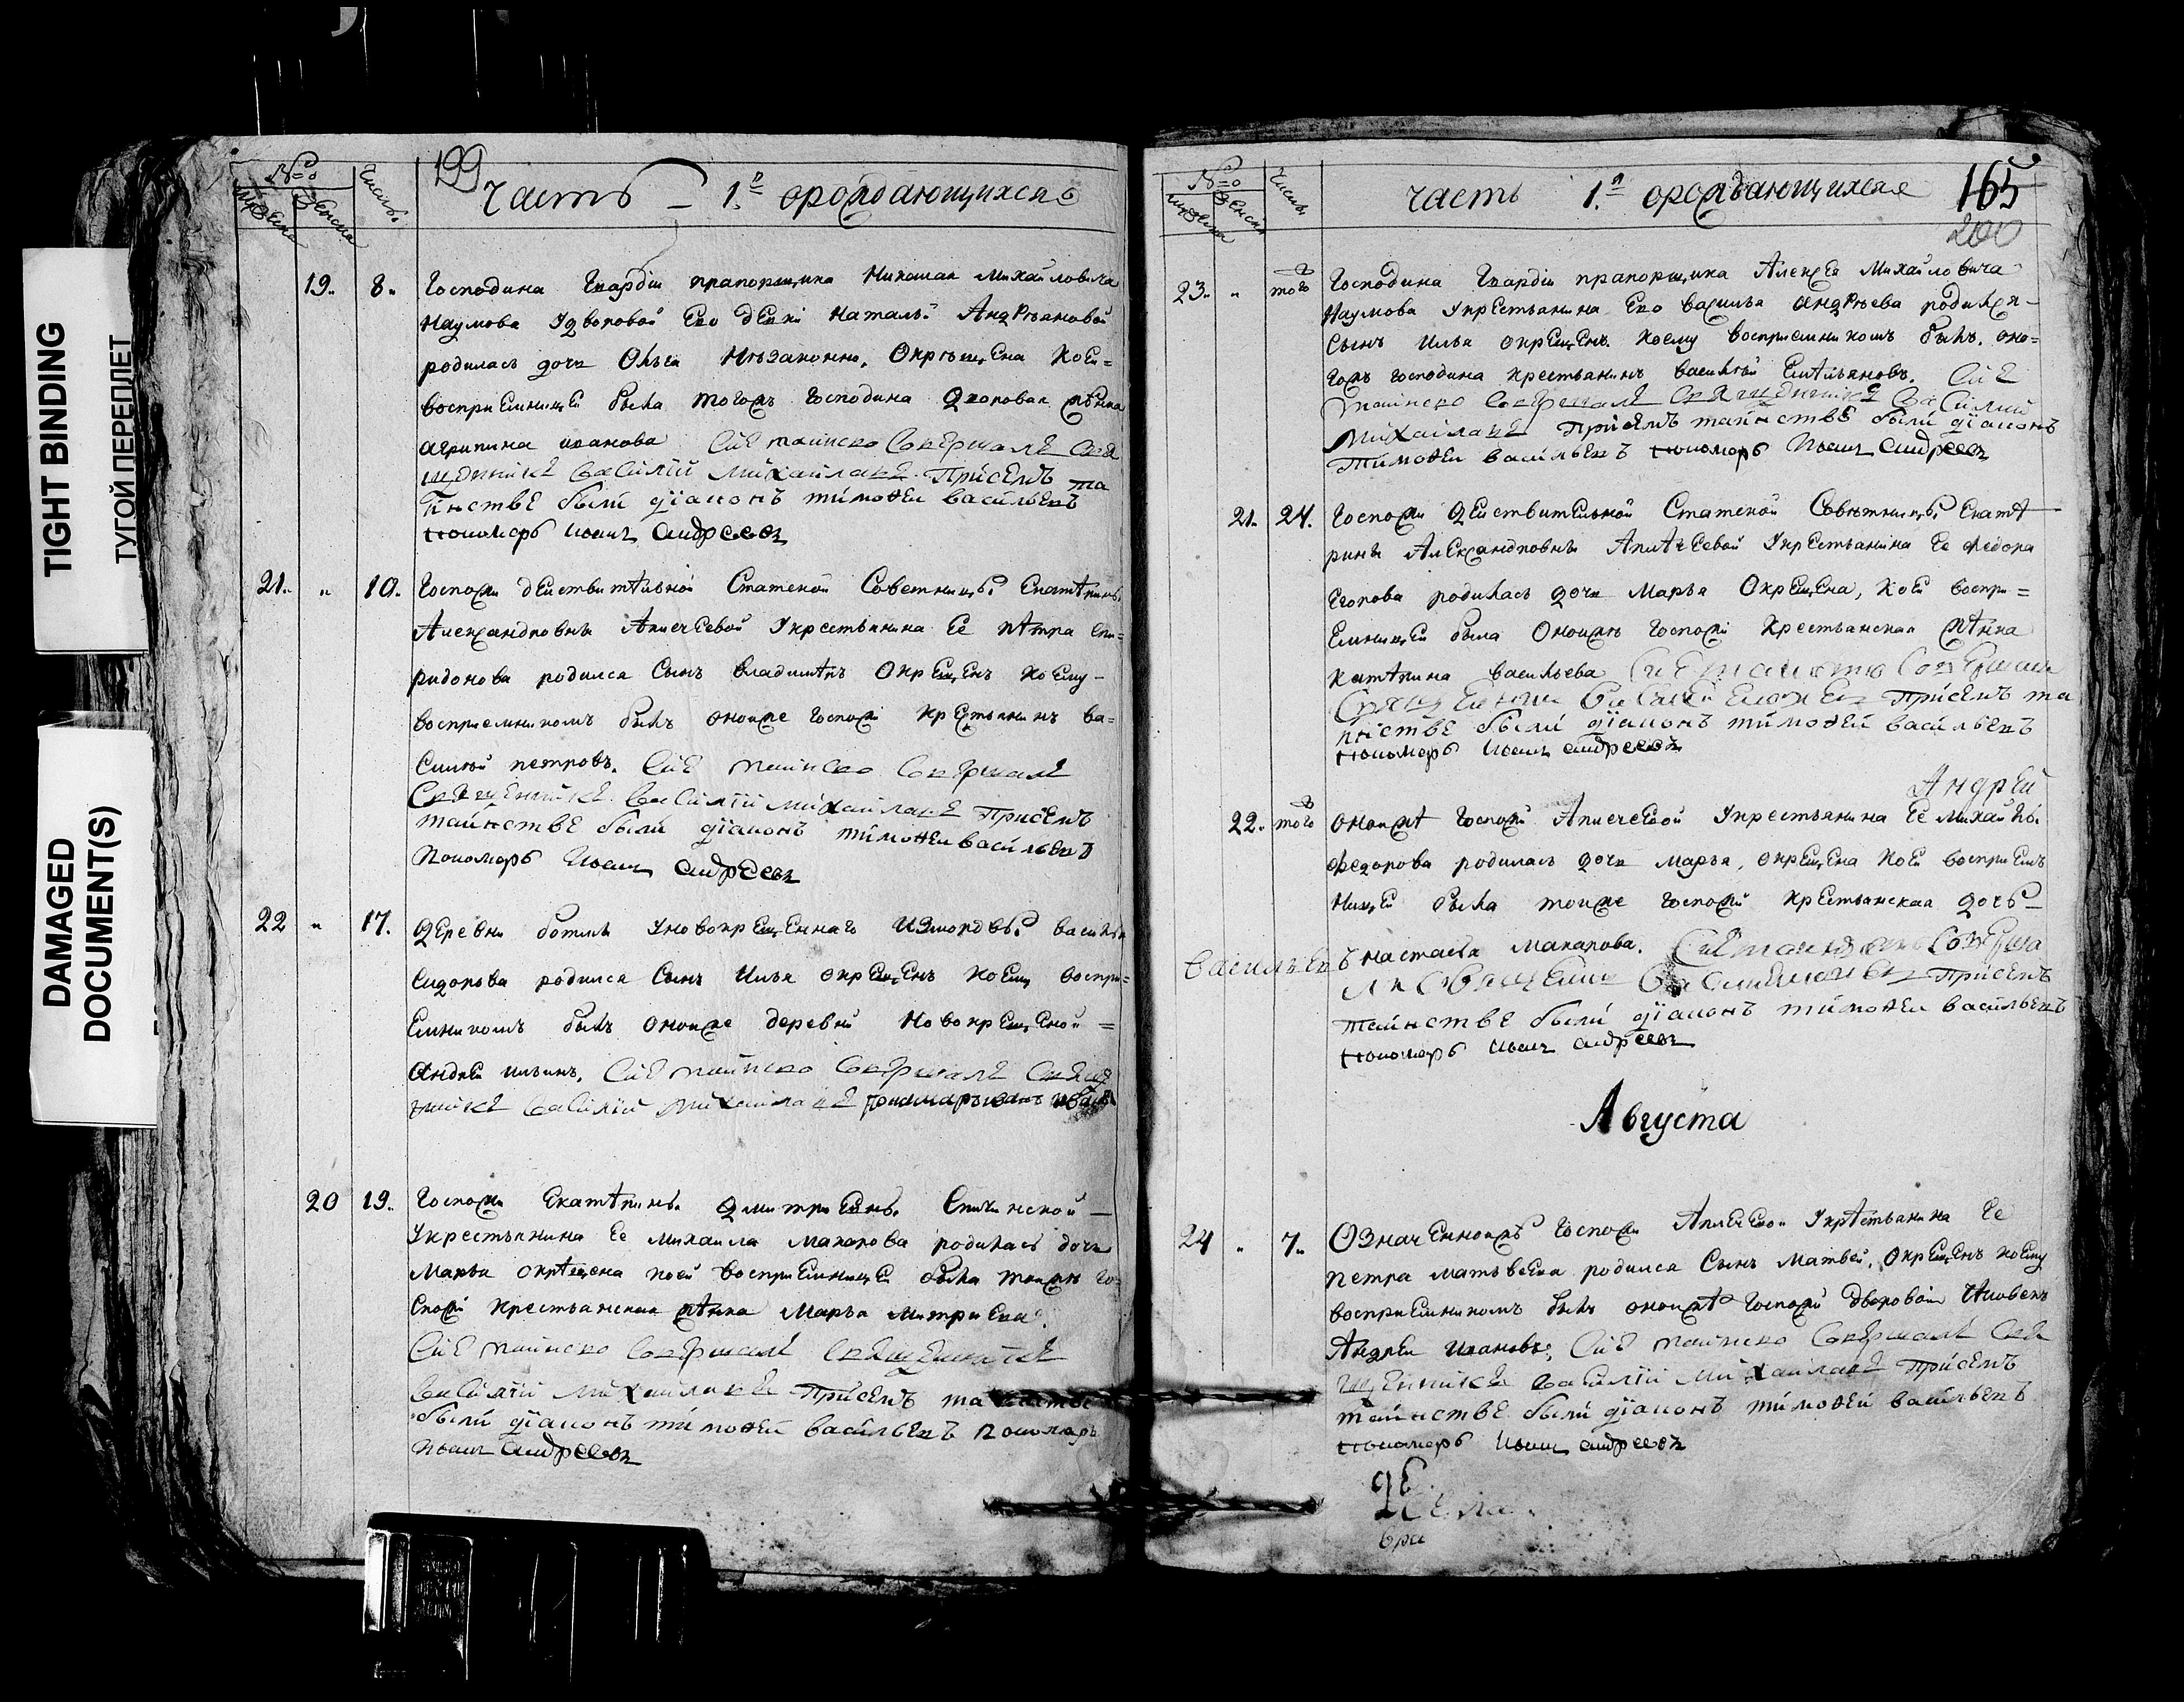 TIGHT BINDING
ТУГОЙ ПЕРЕПЛЕТ
DAMAGED
DOCUMENT(S)
199
№о
Мужеска
Женска
Числъ
часть – 1.я ораждающихся
19. 8. Господина Гвардіи прапорщика Николая Михайловича
Наумова Удворовой Его девки Натальи Андреяновой
родилась дочь Ольга Незаконно, Окрещена Коей=
восприемницей была тогожъ Господина Дворовая женка
Агрипина иванова Сие таинсво Совершалъ Свя
щенникъ Василий Михайлавъ Присемъ та
інстве были дїаконъ тимофеи васильевъ
пономарь Иванъ Андреевъ
21. " 10. Госпожи действителной Статской Советницы Екатерины
Александровны Апичеевой Укрестьянина Ее петра спи=
ридонова родился Сынъ владимеръ Окрещенъ Коему-
восприемникомъ былъ оноиже Госпожи крестьянинъ ва=
силий петровъ. Сие таинсво Совершалъ
Священникъ Василий Михайлавъ Присемъ
таинстве были дїаконъ тимофеи васильевъ
пономарь Иванъ Андреевъ
22 " 17. Деревни Уновокрещеннаго измордвы василья
Сидорова родился Сынъ Илья окрещенъ Коему воспри=
емникомъ былъ оноиже деревни Новокрещеной=
Андрей ильинъ. Сие таинсво Совершалъ Священ
никъ Василий Михайлавъ
20 19. Госпожи Екатерины Дмитриевны
Укрестьянина Ее Михаила Макарова родилась дочь
Марья окрещена коей восприемницей была тоижъ го=
спожи крестьянская женка Марья Митриева.
Сие таинсво Совершалъ Священникъ
Василий Михайлавъ Присемъ
были дїаконъ тимофей васильевъ пономарь
Иванъ Андреевъ
№о
Мужеска
Женска
Числъ
часть 1.я ораждающихся 165
200
23. " того Господина Гвардіи прапорщика Алексея Михайловича
Наумова Укрестьянина Его василья андреева родился-
Сынъ Илья окрещенъ. Коему восприемникомъ былъ. оно=
гожъ господина крестьянинъ василий Емельяновъ. Сие
таинсво Совершалъ Священникъ Василий
Михайлавъ Присемъ таинстве были дїаконъ
тимофеи васильевъ пономарь Иванъ Андреевъ
21. 24. Госпожи Действительной Статской Советницы Екате
рины Александровны Апичеевой Укрестьянина Ее Федора
Егорова родилась дочь Марья Окрещена, Коей воспри=
емницей была Оноижъ Госпожи Крестьянская женка
катерина васильева Сие таинство Совершалъ
Присемъ та
инстве были дїаконъ тимофей васильевъ
пономарь Иванъ Андреевъ
Андрей
22. того оноиже Госпожи Апичеевой Укрестьянина Ее Михайлы
Федорова родилась дочь марья, окрещена Коей восприем
ницей была тоиже госпожи крестьянская дочь-
Васильевъ настасья Макарова.
Присемъ
таинстве были дїаконъ тимофеи васильевъ
пономарь Иванъ Андреевъ
Августа
24 " 7. Означенноижъ Госпожи Апичеевои Укрестьянина Ее
петра матвеева родился Сынъ Матвей. Окрещенъ коему
восприемникомъ былъ оноиже Госпожи Дворовои человекъ
Андреи Ивановъ. Сие таинсво Совершалъ Свя
щенникъ Василий Михайлавъ Присемъ
таинстве были дїаконъ тимофей васильевъ
пономарь Иванъ Андреевъ